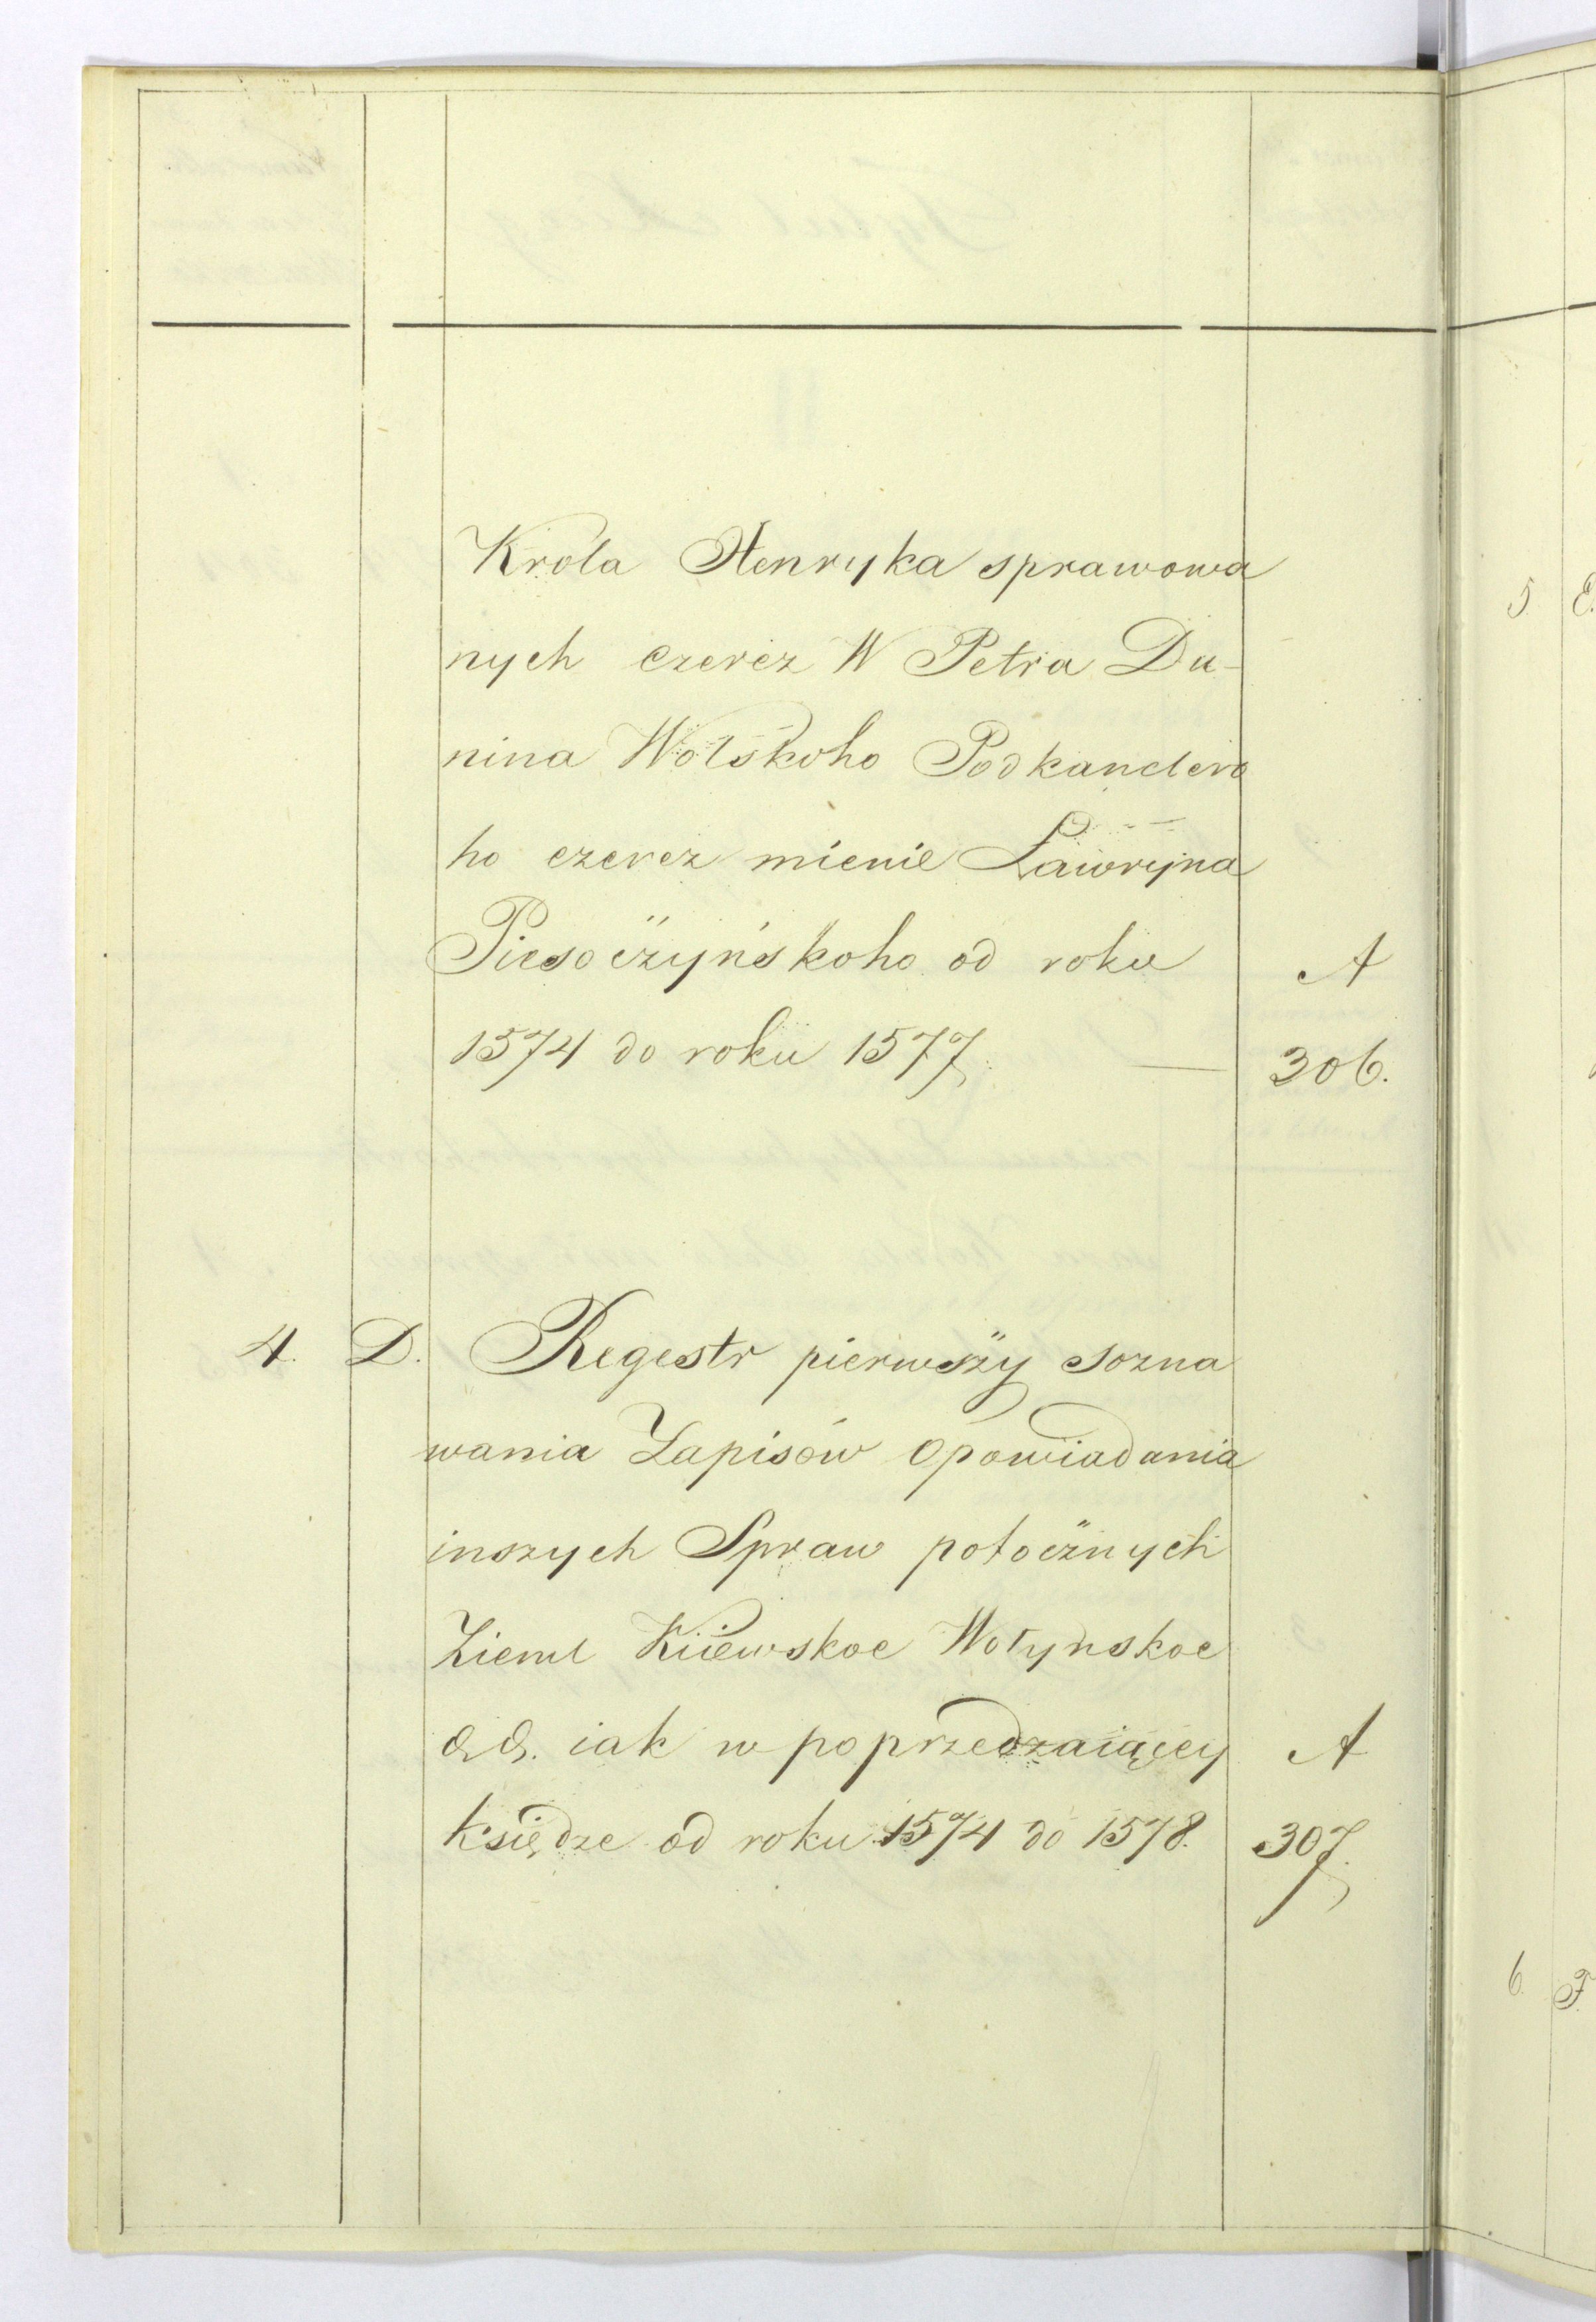 Króla Henryka sprawowa
nych czerez W Petra Du-
nina Wolskoho Podkanclero
ho czerez mienie Ławryna
Piesoczyńskoho od roku A
1574 do roku 1577 — 306.
4. D. Regestr pierwszy sozna
wania Zapisów opowiadania
inszych Spraw potocznych
Zieml Kiiewskoe Wołynskoe
&&. iak w poprzedzaiącey A
księdze od roku 1574 do 1578. 307.
5. E.
6. F